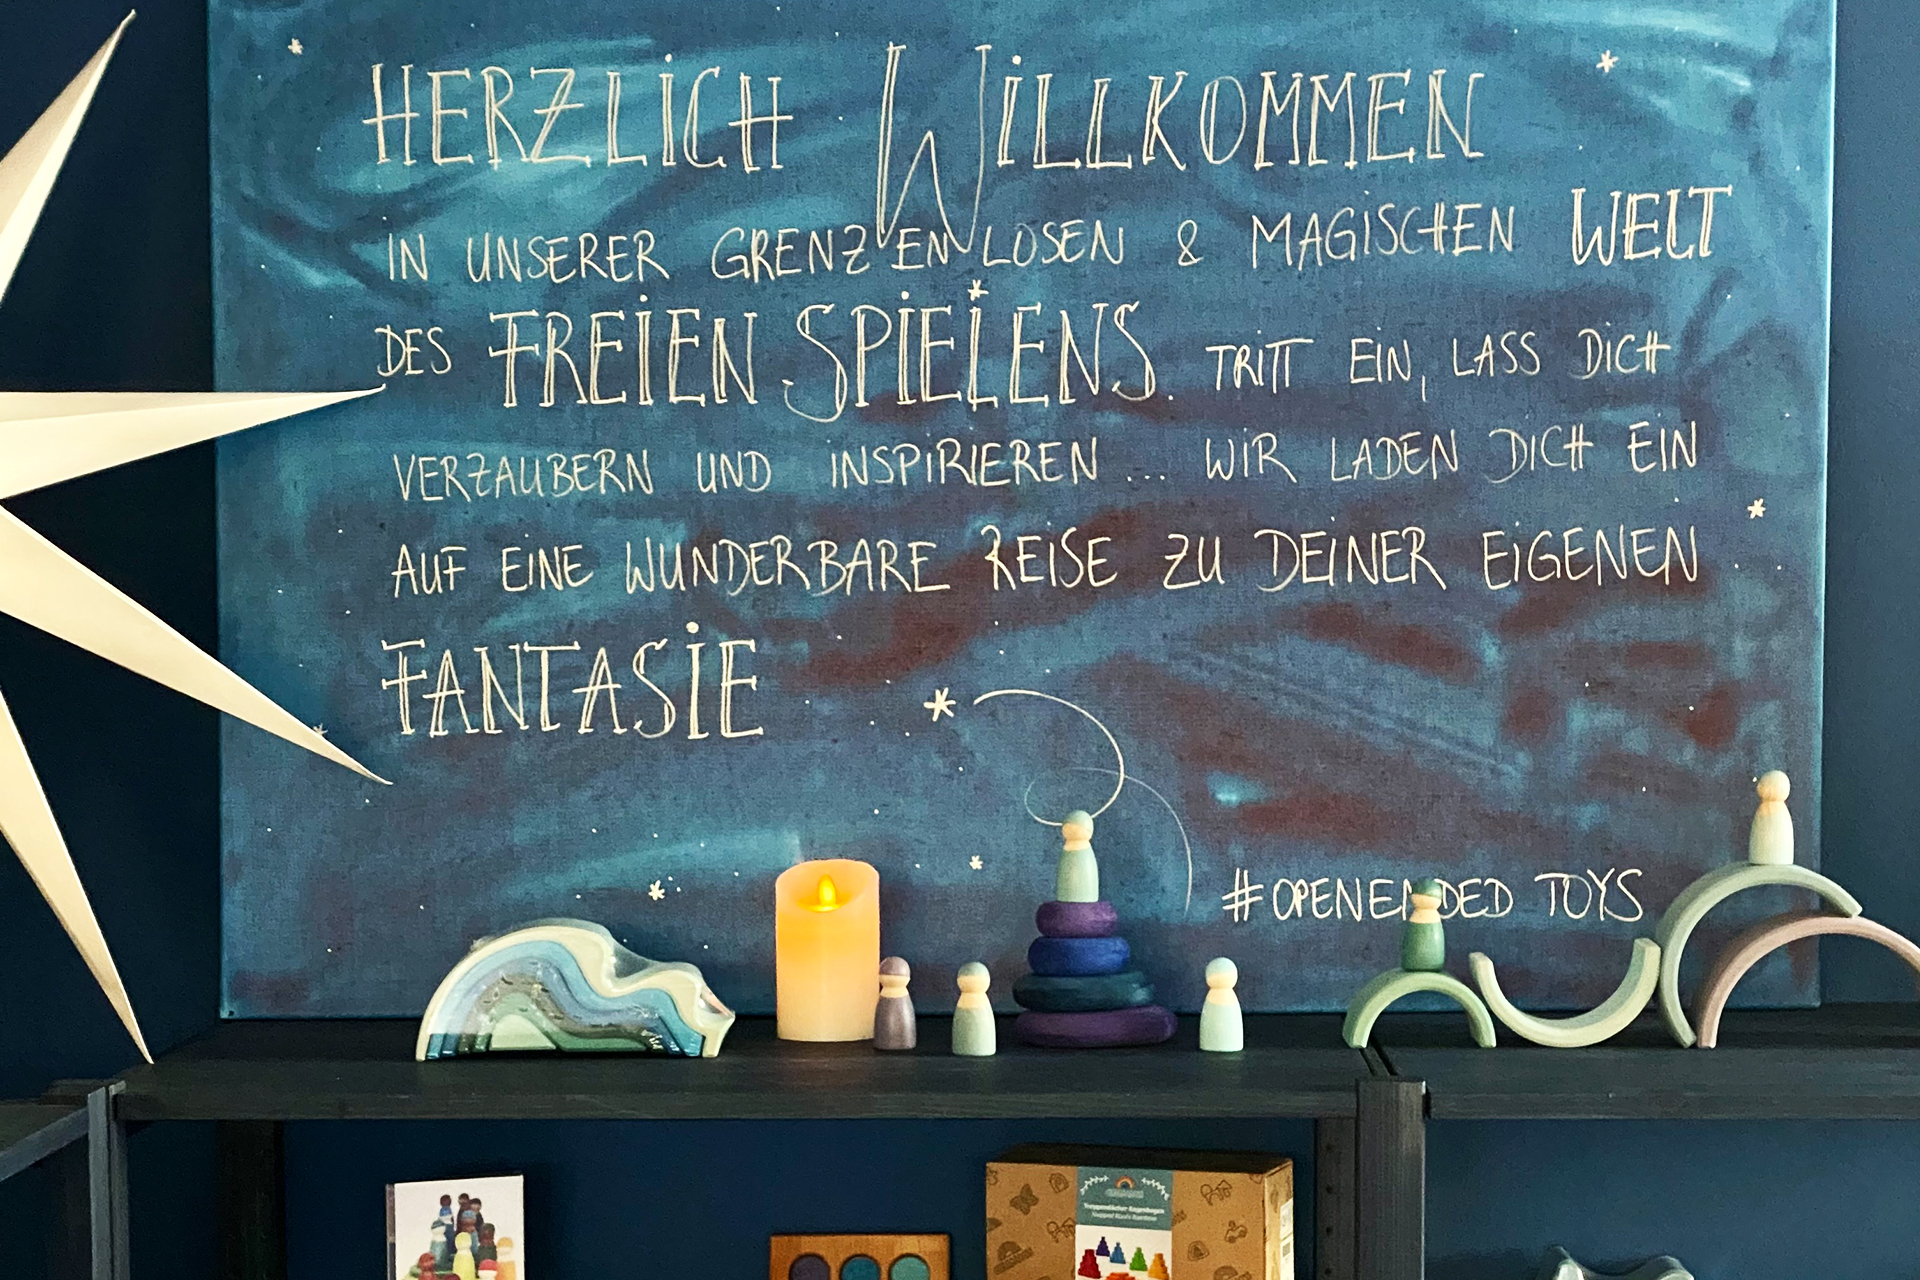 HERZLICH WILLKOMMEN
IN UNSERER GRENZENLOSEN & MAGISCHEN WELT
DES FREIEN SPIELENS. TRITT EIN, LASS DICH
VERZAUBERN UND INSPIRIEREN ... WIR LADEN DICH EIN
AUF EINE WUNDERBARE REISE ZU DEINER EIGENEN
FANTASIE
#OPENENDED TOYS